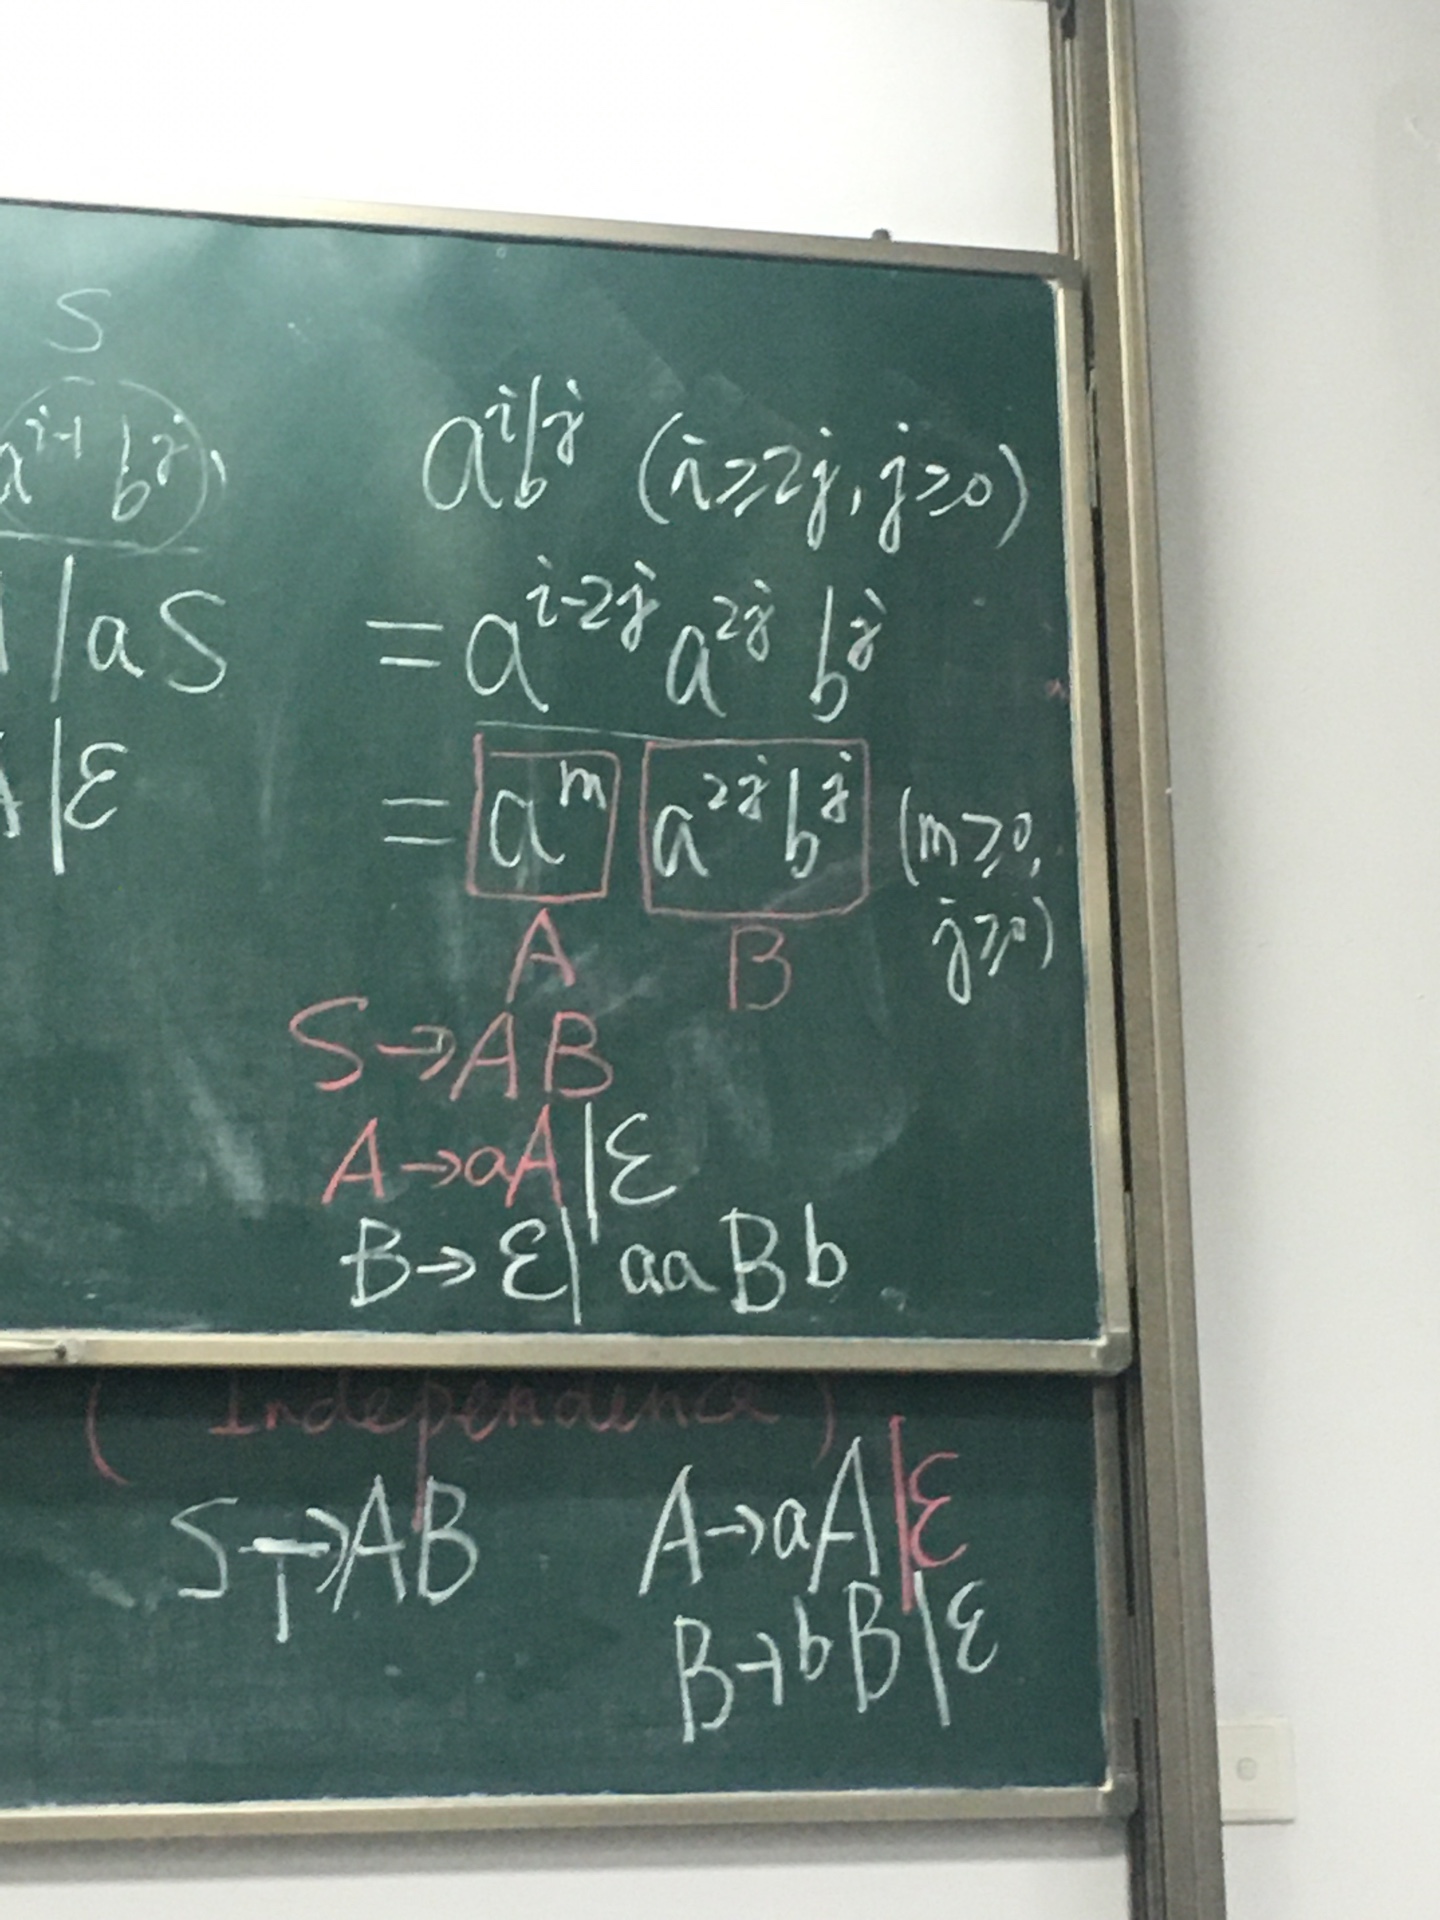 S
a^{i-1} b^j
| a S
| ε
a^i b^j (i≥2j, j≥0)
= a^{i-2j} a^{2j} b^j
= a^m a^{2j} b^j (m≥0,
j≥0)
A B
S→AB
A→aA|ε
B→ε| aaBb
( Independence )
S→AB
A→aA|ε
B→bB|ε